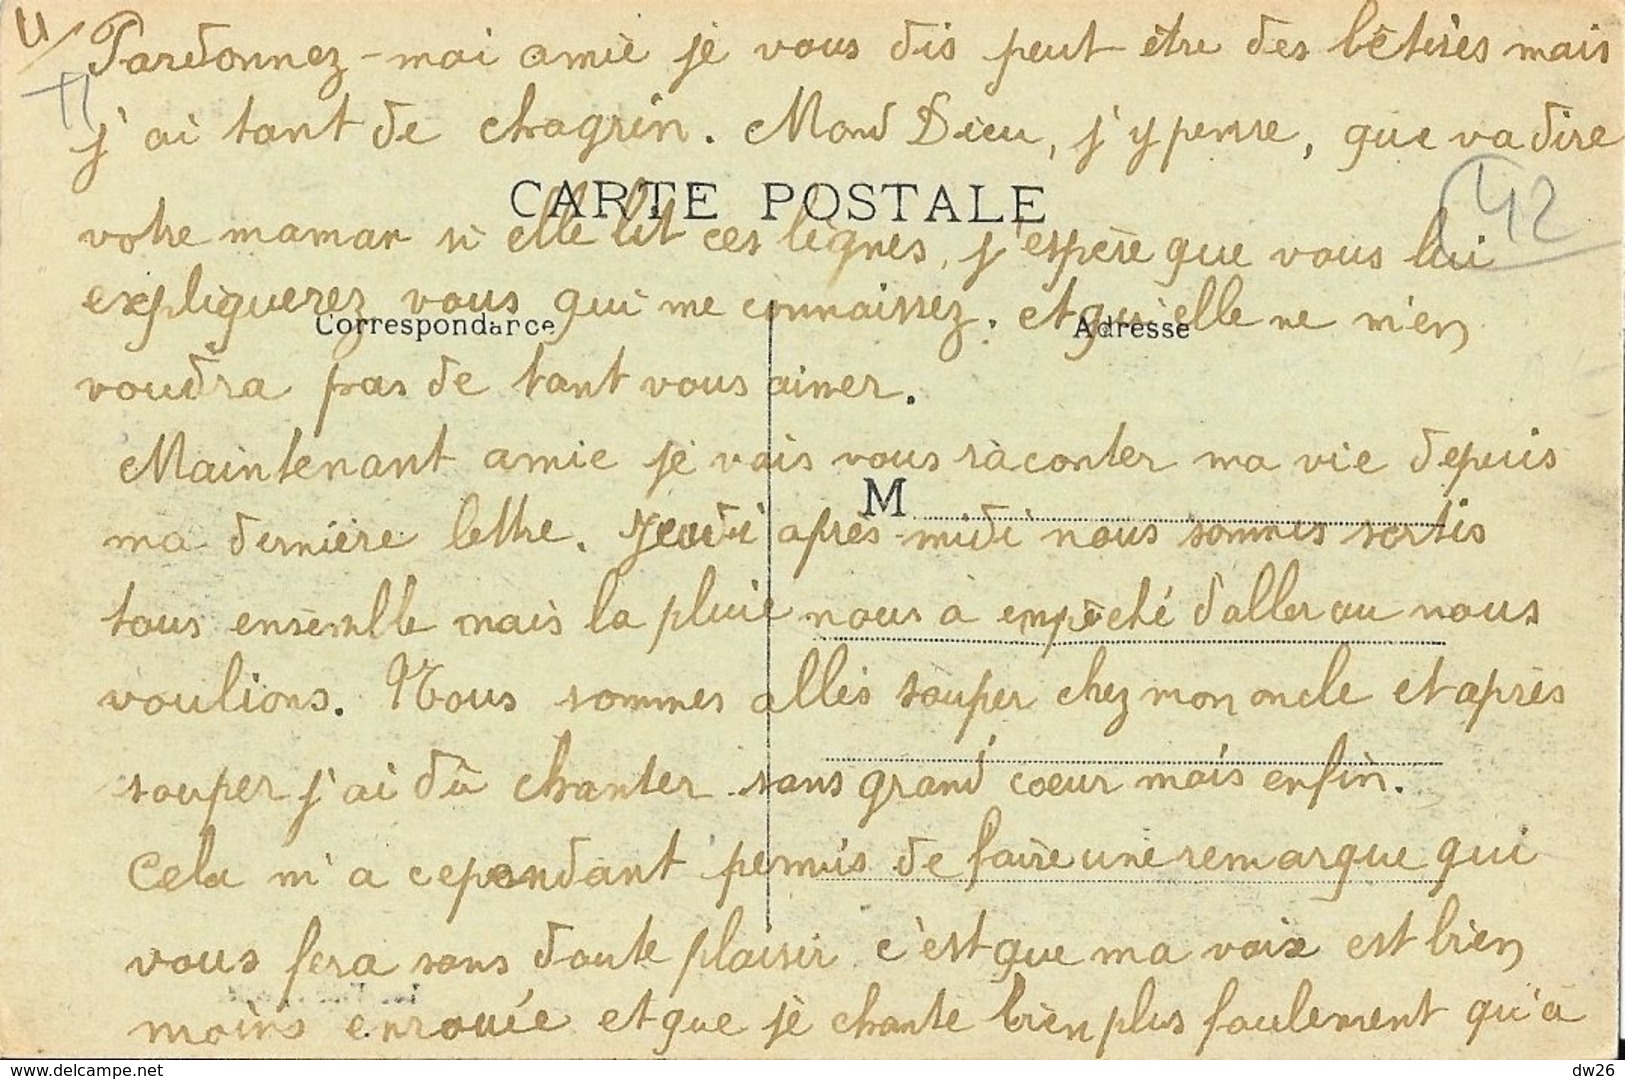 4/ Pardonnez-moi amie je vous dis peut être des bêtises mais
j'ai tant de chagrin. Mond Dieu, j'y pense, que va dire
42
CARTE POSTALE
votre maman si elle lit ces lignes, j'espère que vous lui
expliquerez vous qui me connaissez. et qu'elle ne m'en
Correspondance
Adresse
voudra pas de tant vous aimer.
Maintenant amie je vais vous raconter ma vie depuis
M
ma dernière lettre. Jeudi après-midi nous sommes sortis
tous ensemble mais la pluie nous a empêché d'aller ou nous
voulions. Nous sommes allés souper chez mon oncle et après
souper j'ai dû chanter sans grand coeur mais enfin.
Cela m'a cependant permis de faire une remarque qui
vous fera sans doute plaisir c'est que ma voix est bien
moins enrouée et que je chante bien plus facilement qu'à
delcampe.net
dw26